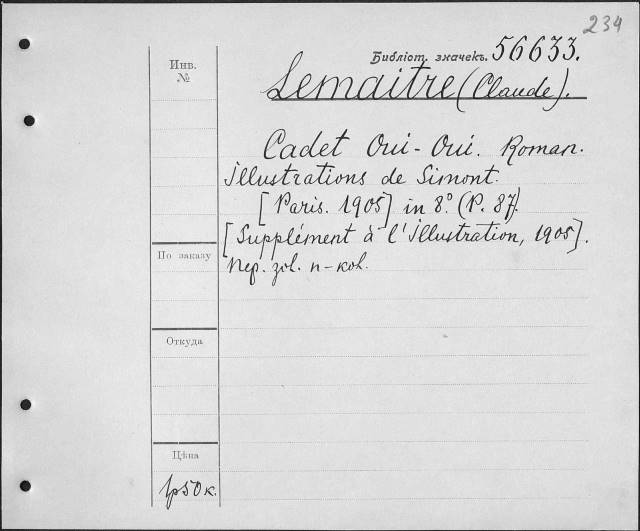 234
Библіот. значекъ. 56633.
Инв.
№
Lemaitre (Claude).
Cadet Oui-Oui. Roman.
illustrations de Simont.
[Paris. 1905] in 8º. (P. 87).
[Supplément à l'illustration, 1905].
По заказу
Пер. зол. п-кол.
Откуда
Цѣна
1р50к.